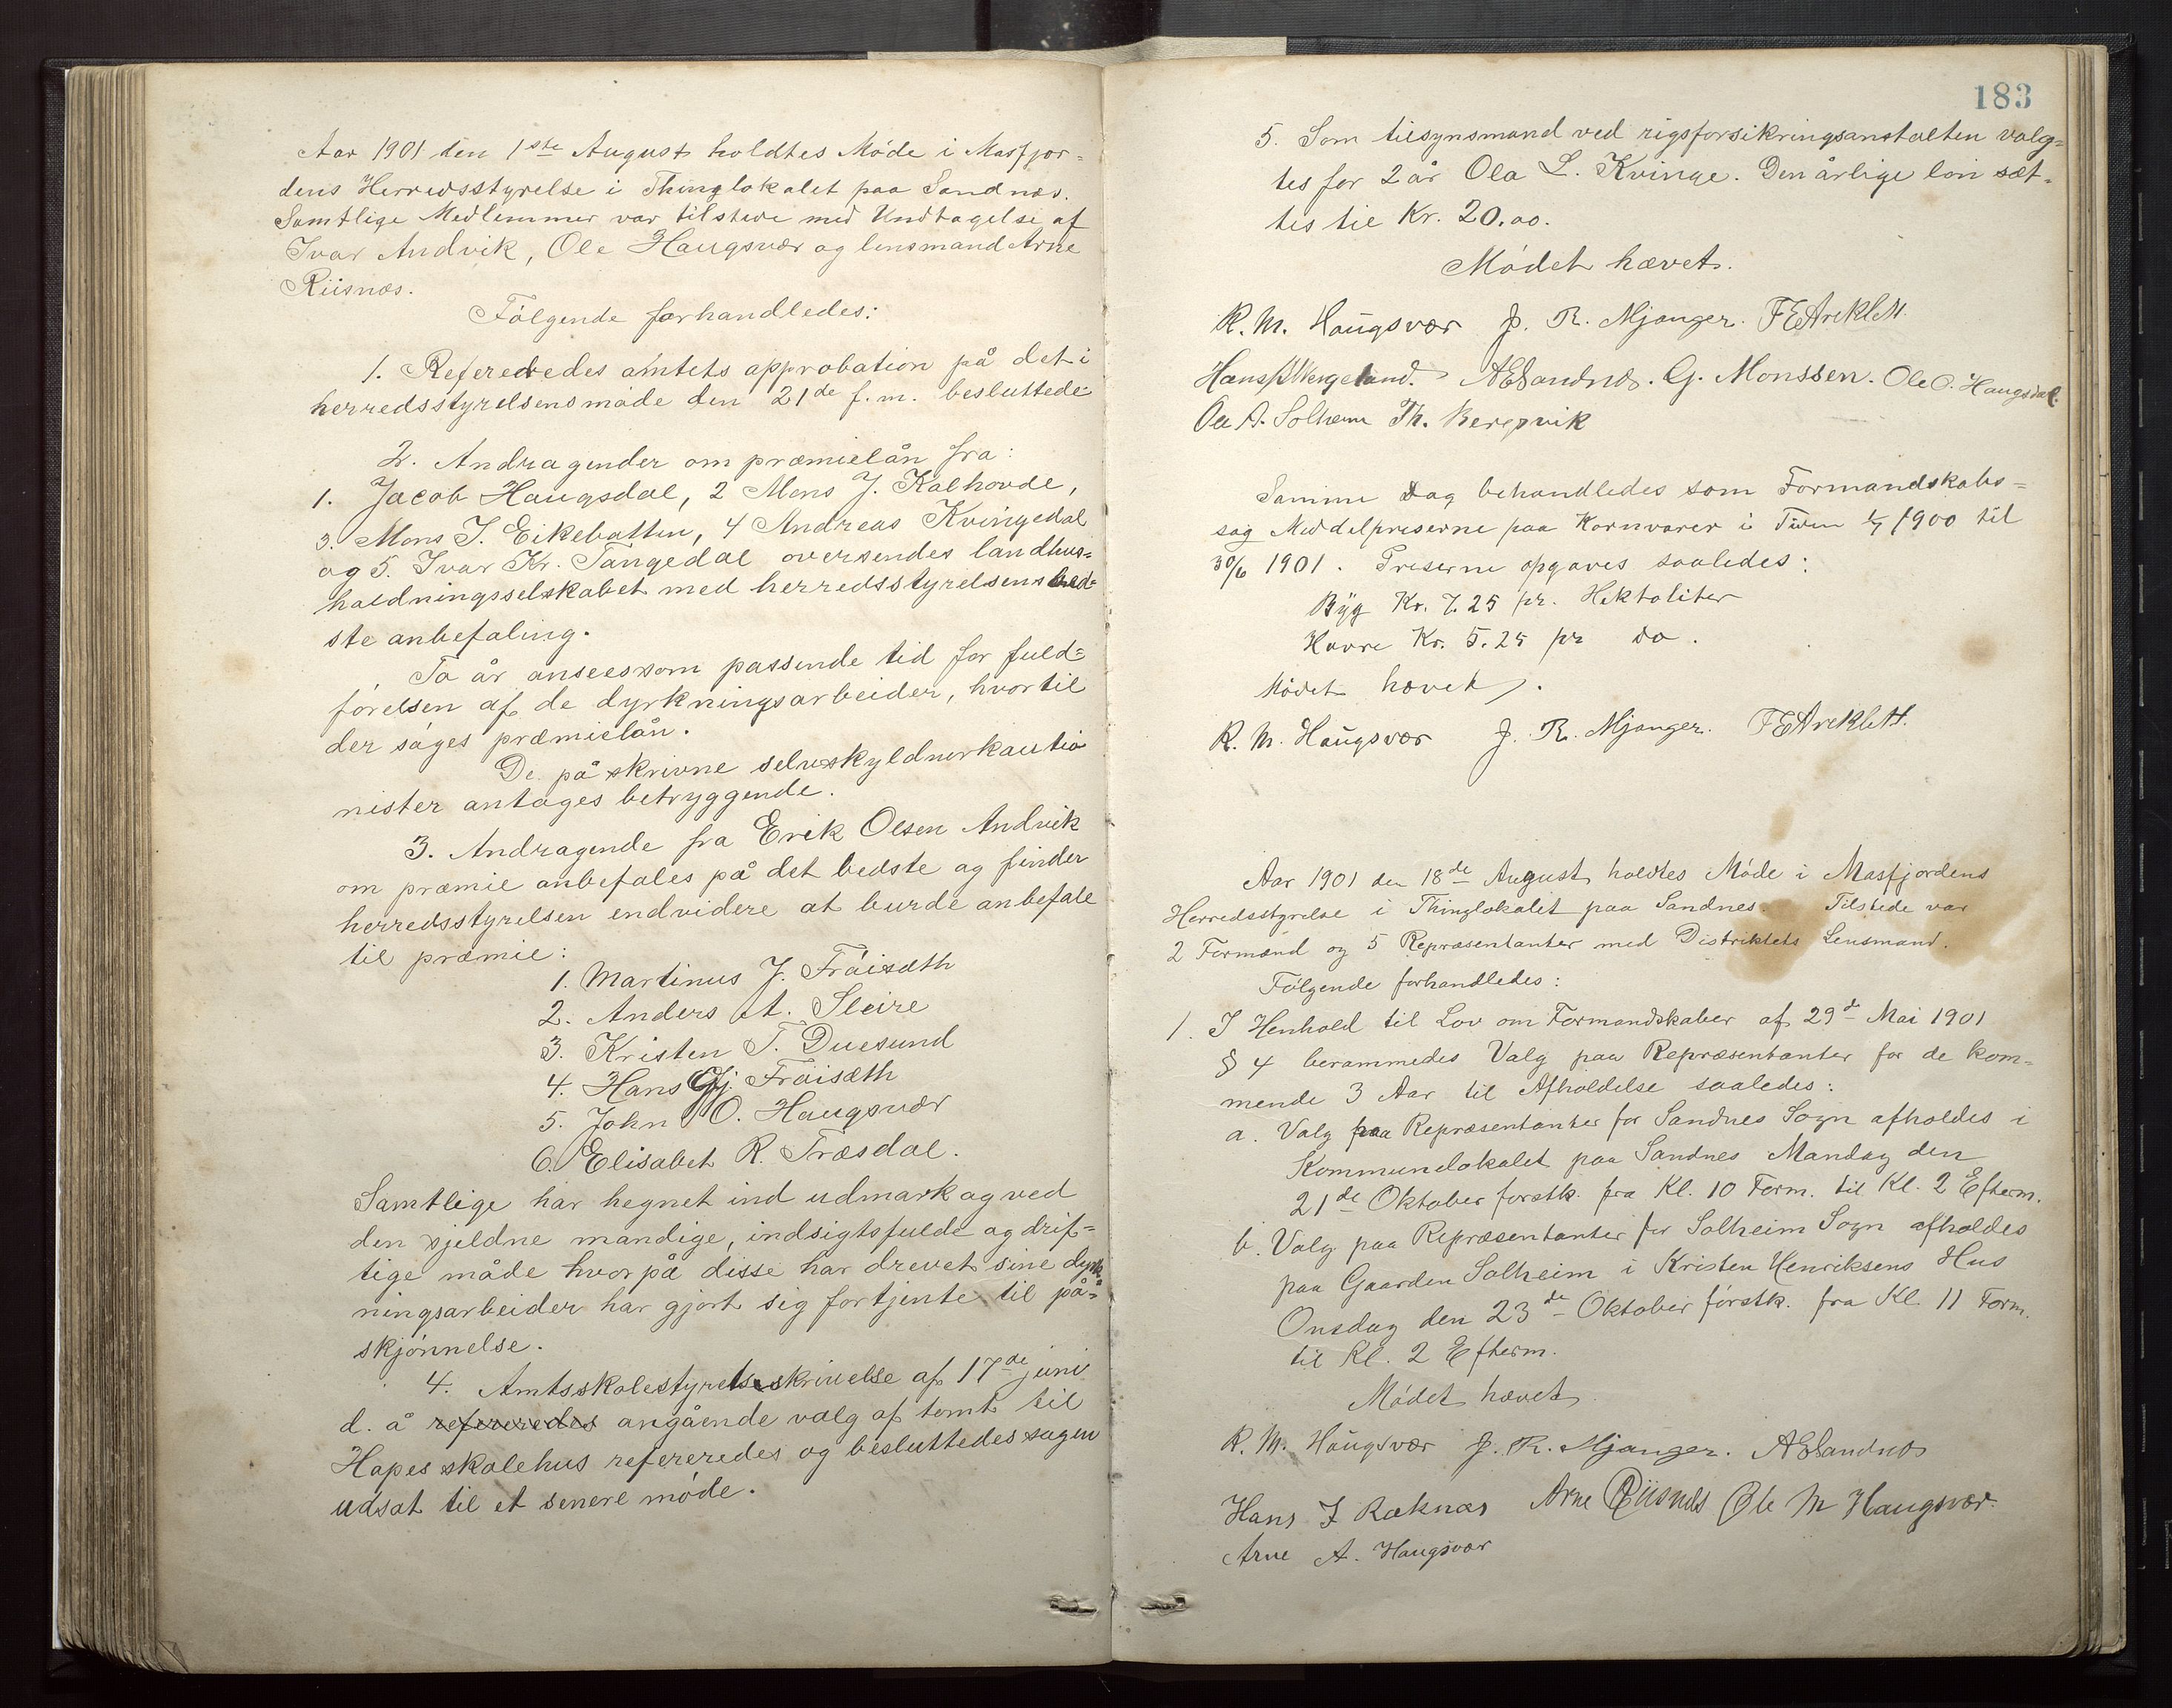 Aar 1901 den 1ste August holdtes Møde i Masfjor-
dens Herredsstyrelse i Thinglokalet paa Sandnæs.
Samtlige Medlemmer var tilstede med Undtagelse af
Ivar Andvik, Ole Haugsvær og lensmand Arne
Riisnæs.
Følgende forhandledes:
1. Refereredes amtets approbation på det i
herredsstyrelsens møde den 21de f.m. besluttede
2. Andragender om præmielån fra:
1. Jacob Haugsdal, 2 Mons J. Kalhovde,
3. Mons J. Eikebotten, 4 Andreas Kvingedal
og 5. Ivar Kr. Tangedal oversendes landhus=
holdningsselskabet med herredsstyrelsens bed=
ste anbefaling.
To år ansees som passende tid for fuld=
førelsen af de dyrkningsarbeider, hvortil
der søges præmielån.
De påskrivne selvskyldnerkautio
nister antages betryggende.
3. Andragende fra Erik Olsen Andvik
om præmie anbefales på det bedste og finder
herredsstyrelsen endvidere at burde anbefale
til præmie:
1. Martinus J. Frøisæth
2. Anders A. Sleire
3. Kristen T. Duesund
4. Hans Gj. Frøisæth
5. John O. Haugsvær
6. Elisabet R. Træsdal.
Samtlige har hegnet ind udmark og ved
den sjeldne mandige, indsigtsfulde og drif=
tige måde hvorpå disse har drevet sine dyrk=
ningsarbeider har gjort sig fortjente til på=
skjønnelse.
4. Amtsskolestyrelsesskrivelse af 17de juni
d. å refereredes angående valg af tomt til
Hopes skolehus refereredes og besluttedes sagen
udsat til et senere møde.
183
5. Som tilsynsmand ved rigsforsikringsanstalten valg=
tes for 2 år Ola L. Kvinge. Den årlige løn sæt=
tes til Kr. 20.00.
Mødet hævet.
R. M. Haugsvær J. R. Mjanger. F E Areklett.
Hans Wergeland. A E Sandnæs. G. Monssen. Ole O. Haugsdal.
Ole A. Solheim Th. Bergsvik
Samme Dag behandledes som Formandskabs=
sag Middelpriserne paa Kornvarer i Tiden 1/7 1900 til
30/6 1901. Priserne opgaves saaledes:
Byg Kr. 7.25 pr. Hektoliter
Havre Kr. 5.25 pr do.
Mødet hævet.
R. M. Haugsvær J. R. Mjanger. F E Areklett.
Aar 1901 den 18de August holdtes Møde i Masfjordens
Herredsstyrelse i Thinglokalet paa Sandnes. Tilstede var
2 Formænd og 5 Repræsentanter med Distriktets Lensmand.
Følgende forhandledes:
1. I Henhold til Lov om Formandskaber af 29de Mai 1901
§ 4 berammedes Valg paa Repræsentanter for de kom=
mende 3 Aar til Afholdelse saaledes:
a. Valg paa Repræsentanter for Sandnes Sogn afholdes i
Kommunelokalet paa Sandnes Mandag den
21de Oktober førstk. fra Kl. 10 Form. til Kl. 2 Efterm.
b. Valg paa Repræsentanter for Solheim Sogn afholdes
paa Gaarden Solheim i Kristen Henriksens Hus
Onsdag den 23de Oktober førstk. fra Kl. 11 Form.
til Kl. 2 Efterm.
Mødet hævet.
R. M. Haugsvær J. R. Mjanger. A E Sandnæs
Hans J Räknæs Arne Riisnæs Ole M Haugsvær.
Arne A. Haugsvær